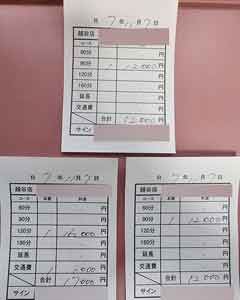 日 7年11月7日
越谷店
コース 本数 料金
60分 円
90分 1 12,000円
120分 円
160分 円
延長 円
交通費 円
合計 12,000円
サイン
日 7年11月7日
越谷店
コース 本数 料金
60分 円
90分 円
120分 1 16,000円
160分 円
延長 円
交通費 1,000円
合計 17,000円
サイン
日 7年11月7日
越谷店
コース 本数 料金
60分 円
90分 1 12,000円
120分 円
160分 円
延長 円
交通費 円
合計 12,000円
サイン